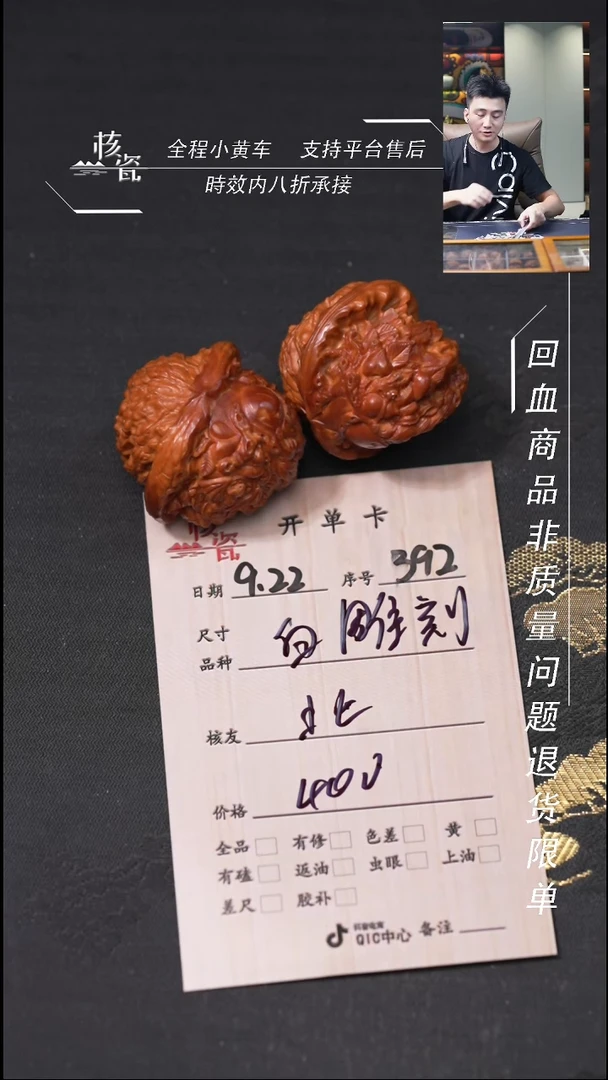 核瓷
全程小黄车 支持平台售后
時效内八折承接
回血商品非质量问题退货限单
核瓷
开单卡
日期 9.22 序号 392
尺寸
品种 雕刻
核友 北
价格 400
全品 有修 色差 黄
有磕 返油 虫眼 上油
差尺 胶补
抖音电商
QIC中心 备注